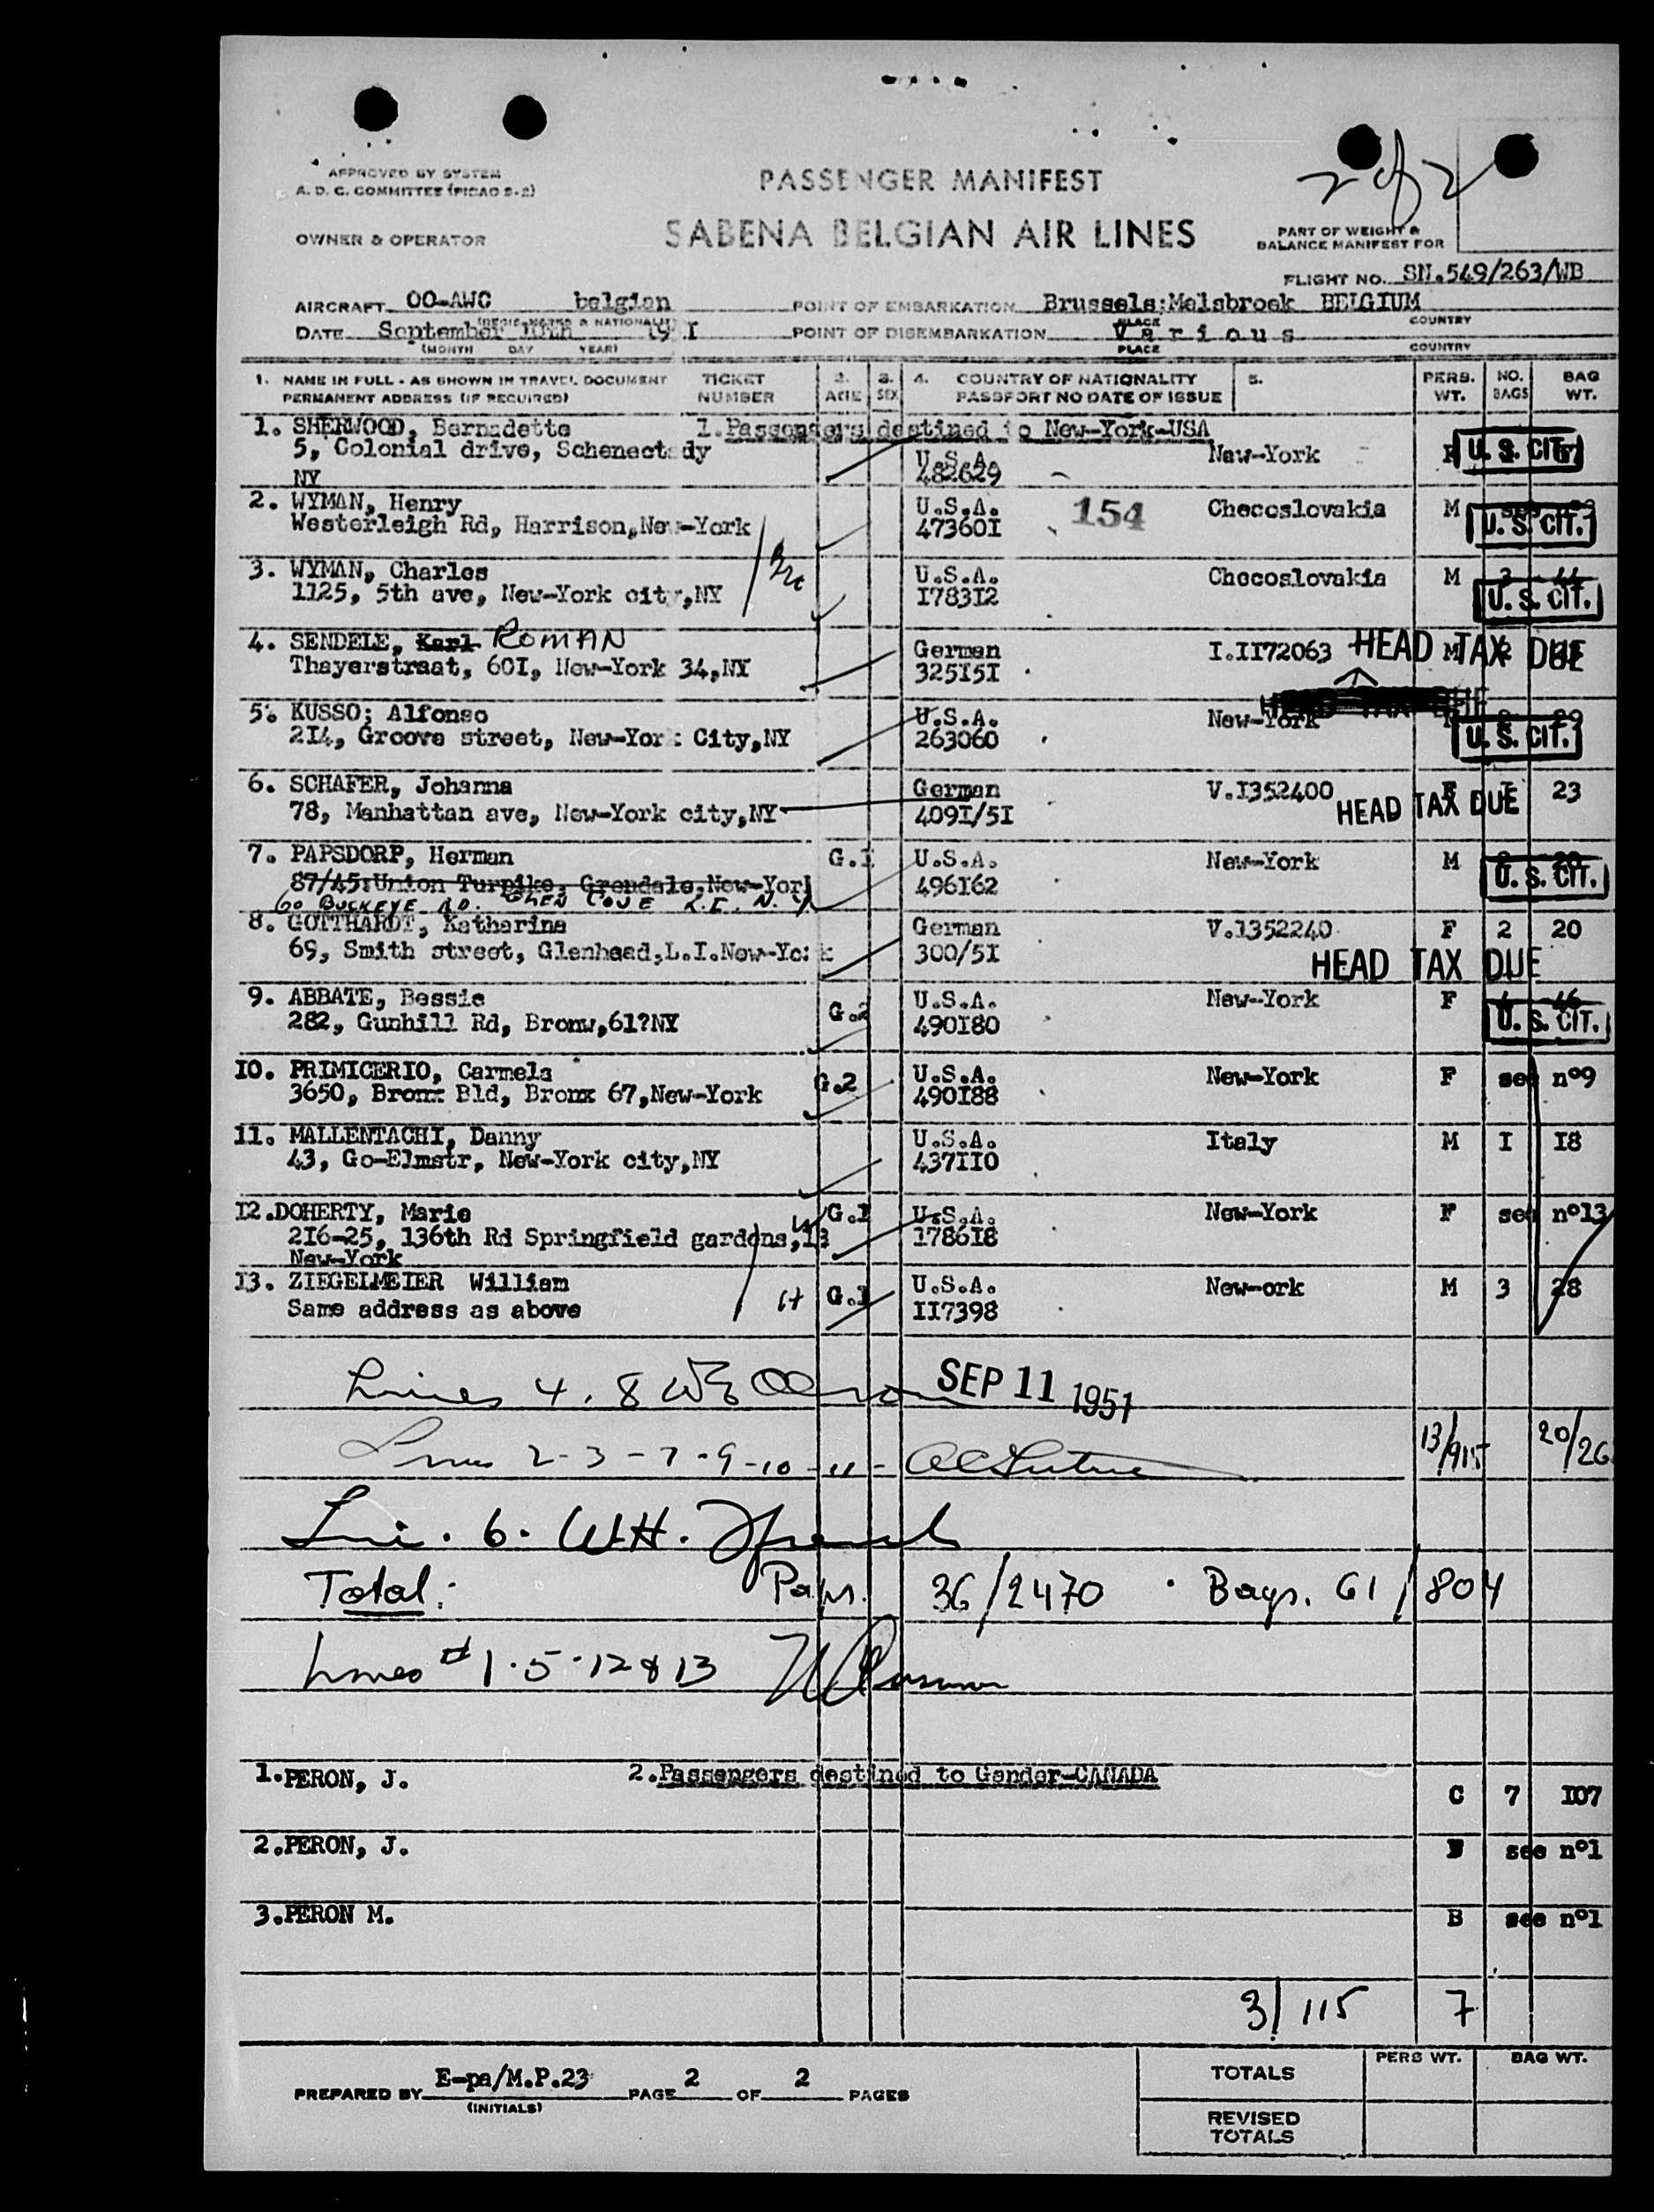 APPROVED BY SYSTEM
A. D. C. COMMITTEE (PICAO S-2)
PASSENGER MANIFEST
2 of 2
OWNER & OPERATOR
SABENA BELGIAN AIR LINES
PART OF WEIGHT &
BALANCE MANIFEST FOR
FLIGHT NO. SN.549/263/WB
AIRCRAFT OO-AWC belgian POINT OF EMBARKATION Brussels:Melsbroek BELGIUM
PLACE COUNTRY
DATE September 10th POINT OF DISEMBARKATION Various
(MONTH DAY YEAR) PLACE COUNTRY
1. NAME IN FULL - AS SHOWN IN TRAVEL DOCUMENT TICKET 2. 3. 4. COUNTRY OF NATIONALITY 5. PERS. NO. BAG
PERMANENT ADDRESS (IF REQUIRED) NUMBER AGE SEX PASSPORT NO DATE OF ISSUE WT. BAGS WT.
1. SHERWOOD, Bernadette 1.Passengers destined to New-York-USA
5, Colonial drive, Schenectady U.S.A. New-York F U. S. CIT.
NY 482629
2. WYMAN, Henry U.S.A. 154 Checoslovakia M
Westerleigh Rd, Harrison,New-York 47360I U. S. CIT.
3. WYMAN, Charles U.S.A. Checoslovakia M
1125, 5th ave, New-York city,NY I783I2 U. S. CIT.
4. SENDELE, Karl ROMAN German I.II72063 HEAD TAX DUE M 2
Thayerstraat, 60I, New-York 34,NY 325I5I
HEAD TAX DUE
5. KUSSO; Alfonso U.S.A. New-York
214, Groove street, New-York City,NY 263060 U. S. CIT.
6. SCHAFER, Johanna German V.I352400 F I 23
78, Manhattan ave, New-York city,NY 409I/5I HEAD TAX DUE
7. PAPSDORP, Herman G.I U.S.A. New-York M
87/45:Union Turpike, Grendale,New-York 496I62 U. S. CIT.
60 BUCKEYE RD. GLEN COVE L.I. N.Y
8. GOTTHARDT, Katharina German V.1352240 F 2 20
69, Smith street, Glenhead,L.I.New-York 300/5I HEAD TAX DUE
9. ABBATE, Bessie G.2 U.S.A. New-York F 46
282, Gunhill Rd, Bronw,61?NY 490I80 U. S. CIT.
10. PRIMICERIO, Carmela G.2 U.S.A. New-York F see nº9
3650, Bronx Bld, Bronx 67,New-York 490I88
11. MALLENTACHI, Danny U.S.A. Italy M I I8
43, Go-Elmstr, New-York city,NY 437II0
12.DOHERTY, Marie G.I U.S.A. New-York F see nº13
216-25, 136th Rd Springfield gardens,13 I786I8
New-York
13. ZIEGELMEIER William G.I U.S.A. New-ork M 3 28
Same address as above II7398
Lines 4. 8 SEP 11 1951
Lines 2-3-7-9-10-11- 13/915 20/26
Lin. 6. W.H.
Total: Paps. 36/2470 Bags. 61/804
Lines # 1.5.12 & 13
1.PERON, J. 2.Passengers destined to Gander-CANADA C 7 I07
2.PERON, J. see nº1
3.PERON M. B see nº1
3/115 7
PREPARED BY E-pa/M.P.23 PAGE 2 OF 2 PAGES
(INITIALS)
TOTALS PERS WT. BAG WT.
REVISED
TOTALS